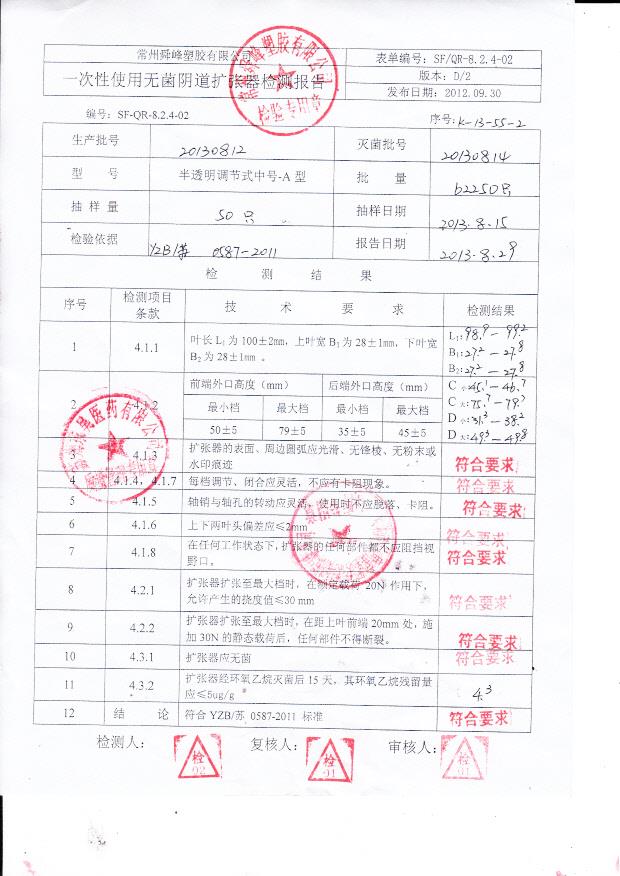 常州舜峰塑胶有限公司
表单编号：SF/QR-8.2.4-02
一次性使用无菌阴道扩张器检测报告
版本：D/2
发布日期：2012.09.30
编号：SF-QR-8.2.4-02
序号：K-13-55-2
生产批号 20130812 灭菌批号 20130814
型 号 半透明调节式中号-A 型 批 量 62250只
抽 样 量 50只 抽样日期 2013.8.15
检验依据 YZB/苏 0587-2011 报告日期 2013.8.29
检 测 结 果
序号 检测项目条款 技 术 要 求 检测结果
1 4.1.1 叶长 L₁ 为 100±2mm，上叶宽 B₁ 为 28±1mm，下叶宽
B₂ 为 28±1mm 。
L₁: 98.9 - 99.2
B₁: 27.2 - 27.8
B₂: 27.2 - 27.8
2 4.1.2 前端外口高度（mm） 后端外口高度（mm）
最小档 最大档 最小档 最大档
50±5 79±5 35±5 45±5
C 小: 45.1 - 46.7
C 大: 75.7 - 79.7
D 小: 31.3 - 38.2
D 大: 49.3 - 49.8
3 4.1.3 扩张器的表面、周边圆弧应光滑、无锋棱、无粉末或
水印痕迹
符合要求
4 4.1.4，4.1.7 每档调节、闭合应灵活，不应有卡阻现象。 符合要求
5 4.1.5 轴销与轴孔的转动应灵活，使用时不应脱落、卡阻。 符合要求
6 4.1.6 上下两叶头偏差应≤2mm 符合要求
7 4.1.8 在任何工作状态下，扩张器的任何部件都不应阻挡视
野口。
符合要求
8 4.2.1 扩张器扩张至最大档时，在额定载荷 20N 作用下，
允许产生的挠度值≤30 mm
符合要求
9 4.2.2 扩张器扩张至最大档时，在距上叶前端 20mm 处，施
加 30N 的静态载荷后，任何部件不得断裂。
符合要求
10 4.3.1 扩张器应无菌 符合要求
11 4.3.2 扩张器经环氧乙烷灭菌后 15 天，其环氧乙烷残留量
应≤5ug/g
4.3
12 结 论 符合 YZB/苏 0587-2011 标准 符合要求
检测人： 检 02 复核人： 检 01 审核人： 检 01
检验专用章